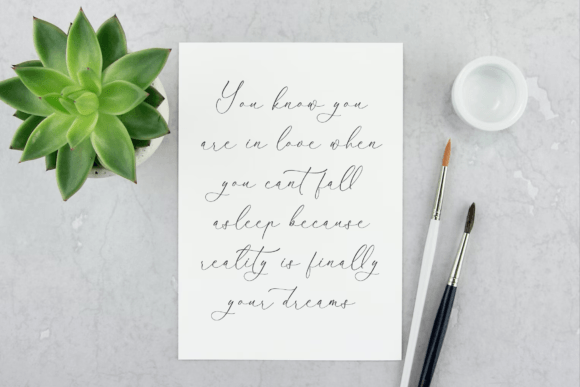 You know you
are in love when
you cant fall
asleep because
reality is finally
your dreams